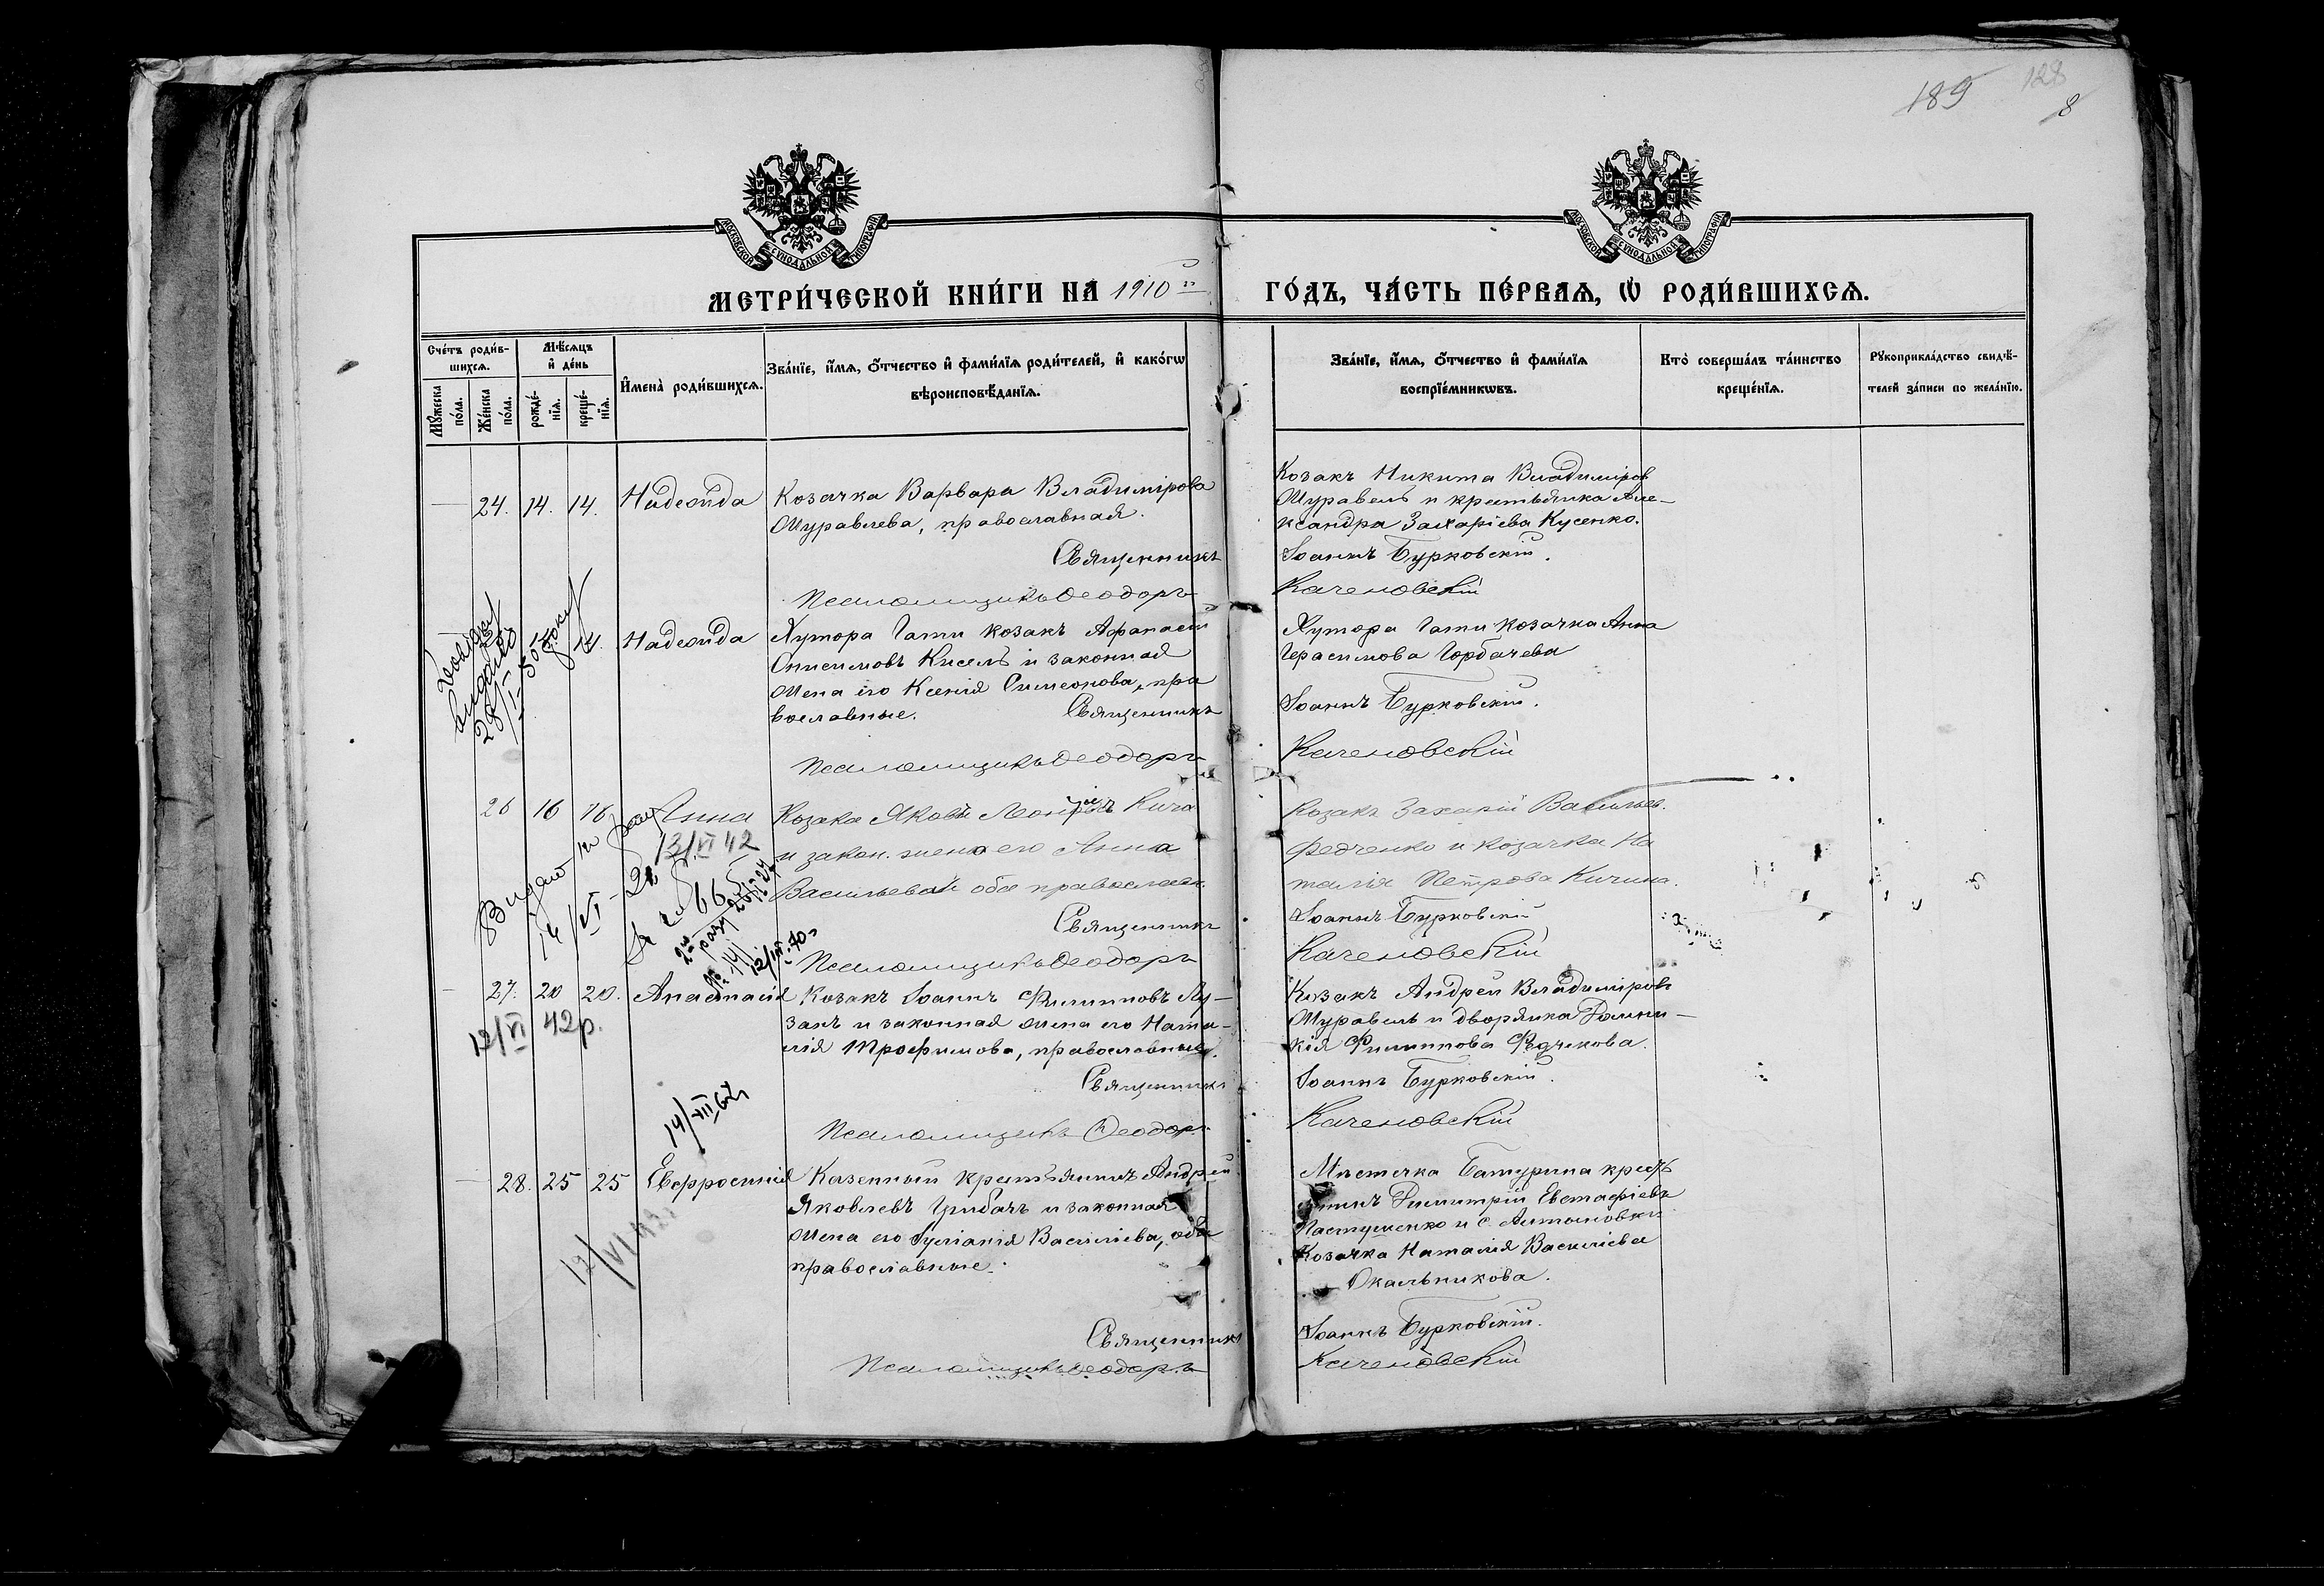 189 128
8
МОСКОВСКОЙ СѴНОДАЛЬНОЙ ТИПОГРАФІИ
МОСКОВСКОЙ СѴНОДАЛЬНОЙ ТИПОГРАФІИ
МЕТРИ́ЧЕСКОЙ КНИ́ГИ НА 1910 й ГО́ДЪ, ЧА́СТЬ ПЕ́РВАЯ, Ѡ҆ РОДИ́ВШИХСЯ.
Сче́тъ роди́в-
шихсѧ.
Мꙋ́жеска по́ла.
Же́нска по́ла.
Мѣ́сѧцъ и҆ де́нь
рожде́-
нїѧ.
креще́-
нїѧ.
И҆мена̀ роди́вшихсѧ.
Зва́нїе, и҆́мѧ, ѻ҆́тчество и҆ фами́лїѧ роди́телей, и҆ како́гѡ
вѣроисповѣ́данїѧ.
Зва́нїе, и҆́мѧ, ѻ҆́тчество и҆ фами́лїѧ
воспрїе́мникѡвъ.
Кто̀ соверша́лъ та́инство
креще́нїѧ.
Рꙋкоприкла́дство свидѣ́-
телей за́писи по жела́нїю.
24. 14. 14. Надежда
Козачка Варвара Владимірова
Журавлева, православная.
Козакъ Никита Владиміров
Журавель и крестьянка Але-
ксандра Захаріева Кусенко.
Священникъ Іоаннъ Бурковскій.
Псаломщикъ Ѳеодоръ Каченовскій
14. Надежда
28/I-50
Хутора Гати козакъ Афанасій
Онисимовъ Кисель и законная
жена его Ксенія Симеонова, пра
вославные.
Хутора Гати козачка Анна
Герасимова Горбачева
Священникъ Іоаннъ Бурковскій.
Псаломщикъ Ѳеодоръ Каченовскій
26 16 16 Анна
13/VI 42
Козака Яковъ Кича
и закон. жена его Анна
Васильева оба православн.
Козакъ Захарій Васильев.
Федченко и козачка На
талія Петрова Кичина.
Священникъ Іоаннъ Бурковскій
Псаломщикъ Ѳеодоръ Каченовскій
27. 20 20. Анастасія
12/VI 42р.
Козакъ Іоаннъ Филипповъ Лу-
занъ и законная жена его Ната-
лія Трофимова, православные.
Козакъ Андрей Владиміровъ
Журавель и дворянка Домни-
кія Филиппова Федчекова.
Священникъ Іоаннъ Бурковскій.
Псаломщикъ Ѳеодоръ Каченовскій
14/VII 62
28. 25 25 Евфросинія
Казенный крестьянинъ Андрей
Яковлевъ Грибачъ и законная
жена его Іуліанія Василіева, оба
православные.
Мѣстечка Батурина кресть
янинъ Димитрій Евстафіевъ
Пастушенко и с. Антоновки
Козачка Наталія Василіева
Окальникова.
Священникъ Іоаннъ Бурковскій.
Псаломщикъ Ѳеодоръ Каченовскій